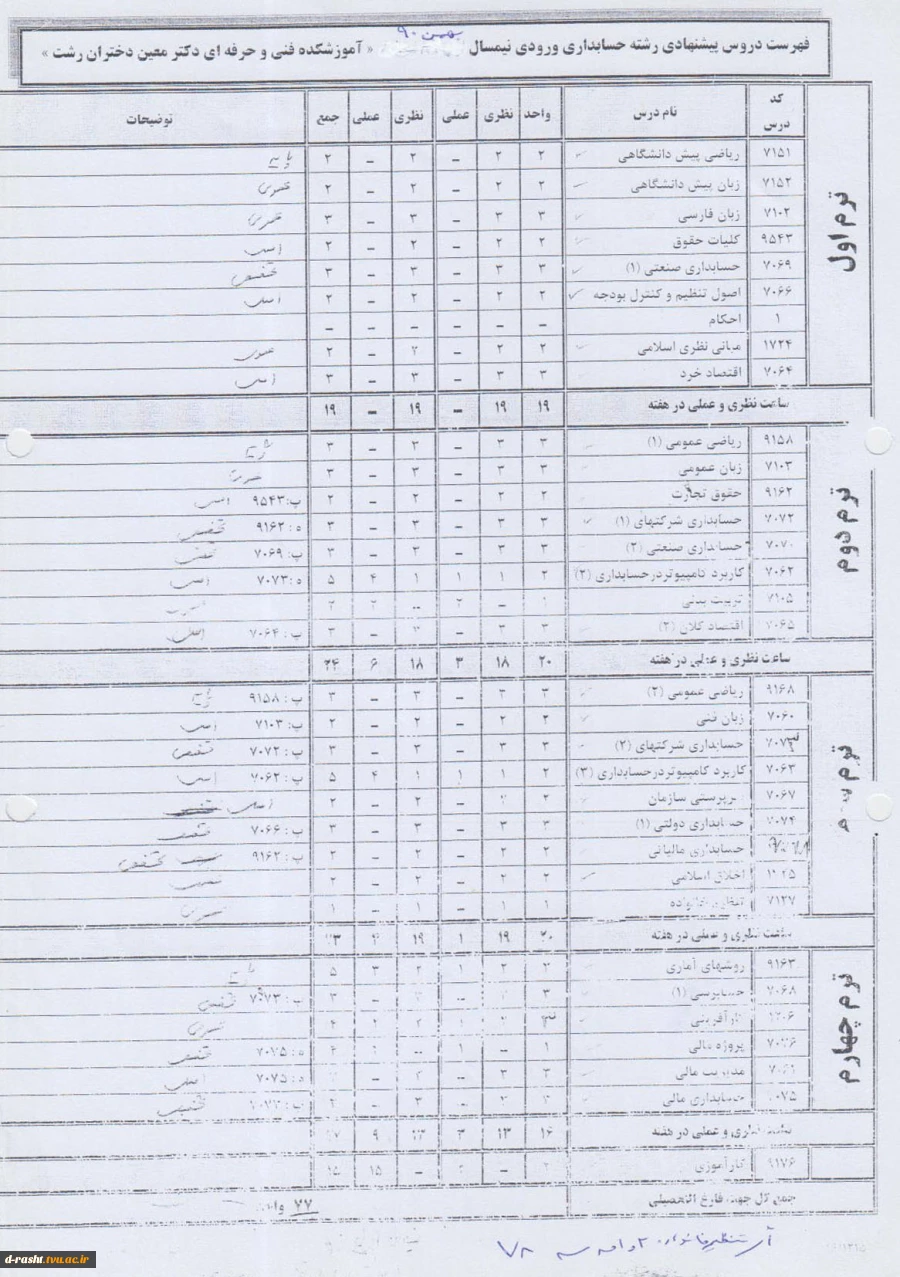 بهمن ۹۰
فهرست دروس پیشنهادی رشته حسابداری ورودی نیمسال « آموزشکده فنی و حرفه ای دکتر معین دختران رشت »
کد درس نام درس واحد نظری عملی نظری عملی جمع توضیحات
ترم اول
۷۱۵۱ ریاضی پیش دانشگاهی ۲ ۲ – ۲ – ۲ پایه
۷۱۵۲ زبان پیش دانشگاهی ۲ ۲ – ۲ – ۲ عمومی
۷۱۰۲ زبان فارسی ۳ ۳ – ۳ – ۳ عمومی
۹۵۴۳ کلیات حقوق ۲ ۲ – ۲ – ۲ اصلی
۷۰۶۹ حسابداری صنعتی (۱) ۳ ۳ – ۳ – ۳ تخصصی
۷۰۶۶ اصول تنظیم و کنترل بودجه ۲ ۲ – ۲ – ۲ اصلی
۱ احکام – – – – – –
۱۷۲۴ مبانی نظری اسلامی ۲ ۲ – ۲ – ۲ عمومی
۷۰۶۴ اقتصاد خرد ۳ ۳ – ۳ – ۳ اصلی
ساعت نظری و عملی در هفته ۱۹ ۱۹ – ۱۹ – ۱۹
ترم دوم
۹۱۵۸ ریاضی عمومی (۱) ۳ ۳ – ۳ – ۳ پایه
۷۱۰۳ زبان عمومی ۳ ۳ – ۳ – ۳ عمومی
۹۱۶۲ حقوق تجارت ۲ ۲ – ۲ – ۲ پ:۹۵۴۳ اصلی
۷۰۷۲ حسابداری شرکتهای (۱) ۳ ۳ – ۳ – ۳ ه:۹۱۶۲ تخصصی
۷۰۷۰ حسابداری صنعتی (۲) ۳ ۳ – ۳ – ۳ پ:۷۰۶۹ تخصصی
۷۰۶۲ کاربرد کامپیوتردرحسابداری (۲) ۲ ۱ ۱ ۱ ۴ ۵ ه:۷۰۷۳ اصلی
۷۱۰۵ تربیت بدنی ۱ – ۲ – ۲ ۲
۷۰۶۵ اقتصاد کلان (۲) ۳ ۳ – ۳ – ۳ پ:۷۰۶۴ اصلی
ساعت نظری و عملی در هفته ۲۰ ۱۸ ۳ ۱۸ ۶ ۲۴
ترم سوم
۹۱۶۸ ریاضی عمومی (۲) ۳ ۳ – ۳ – ۳ پ:۹۱۵۸ پایه
۷۰۶۰ زبان فنی ۲ ۲ – ۲ – ۲ پ:۷۱۰۳ اصلی
۷۰۷۳ حسابداری شرکتهای (۲) ۳ ۳ – ۳ – ۳ پ:۷۰۷۲ تخصصی
۷۰۶۳ کاربرد کامپیوتردرحسابداری (۳) ۲ ۱ ۱ ۱ ۴ ۵ پ:۷۰۶۲ اصلی
۷۰۶۷ سرپرستی سازمان ۲ ۲ – ۲ – ۲ اصلی
۷۰۷۴ حسابداری دولتی (۱) ۳ ۳ – ۳ – ۳ پ:۷۰۶۶ تخصصی
حسابداری مالیاتی ۲ ۲ – ۲ – ۲ پ:۹۱۶۲ تخصصی
اخلاق اسلامی ۲ ۲ – ۲ – ۲ عمومی
۷۱۲۷ تنظیم خانواده ۱ ۱ – ۱ – ۱ عمومی
ساعت نظری و عملی در هفته ۲۰ ۱۹ ۱ ۱۹ ۴ ۲۳
ترم چهارم
۹۱۶۳ روشهای آماری ۳ ۲ ۱ ۲ ۳ ۵ پایه
۷۰۶۸ حسابرسی (۱) ۳ – – ۳ پ:۷۰۷۳ تخصصی
کارآفرینی
پروژه مالی ۱ – ۱ ه:۷۰۷۵ تخصصی
مدیریت مالی ۳ ۳ – ه:۷۰۷۵ اصلی
حسابداری مالی – ۳ – پ:۷۰۷۳ تخصصی
ساعت نظری و عملی در هفته ۱۶ ۱۳ ۳ ۱۳ ۹
۹۱۷۶ کارآموزی ۲ – ۲ – ۱۵ ۱۵
جمع کل جهت فارغ التحصیلی ۷۷ واحد
d-rasht.tvu.ac.ir